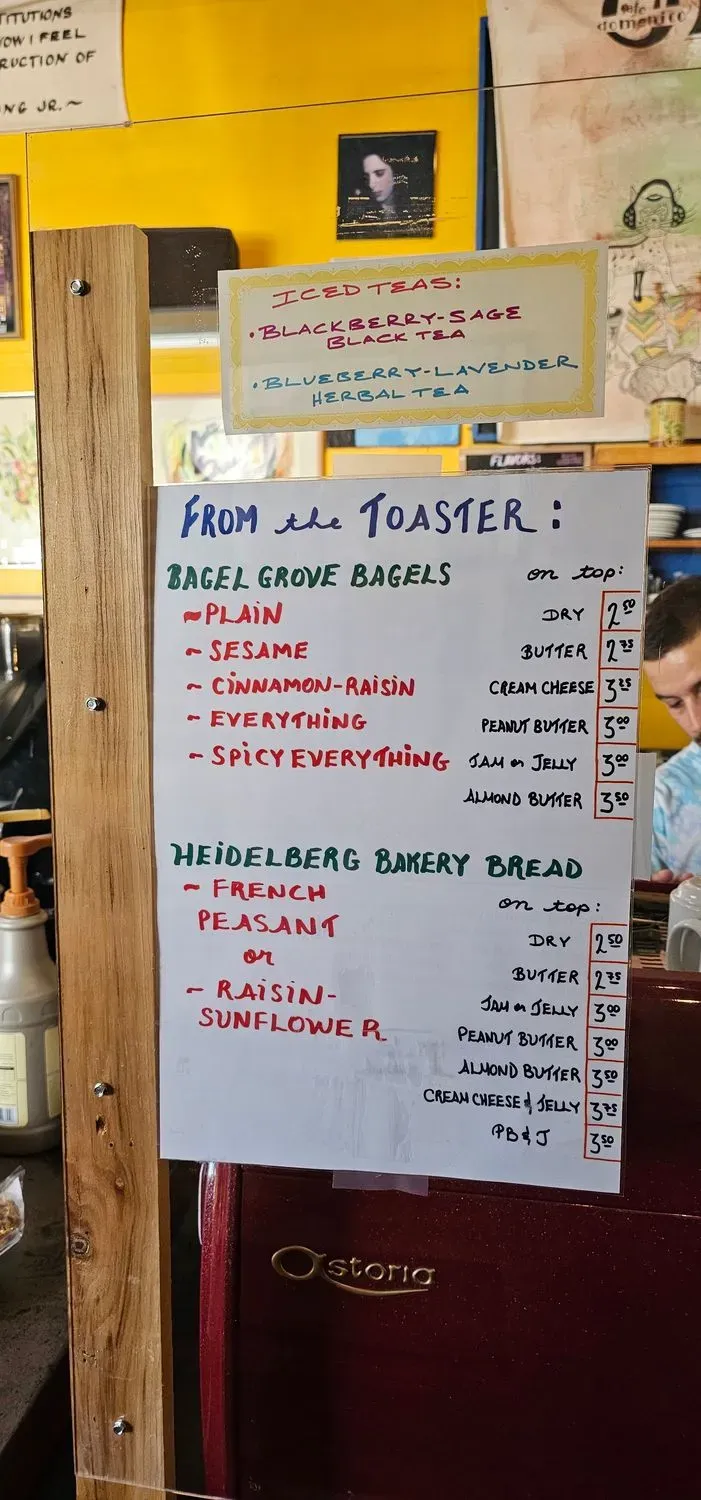 TITUTIONS
OW I FEEL
RUCTION OF
NG JR.~
cafe
domenico
ICED TEAS:
•BLACKBERRY-SAGE
BLACK TEA
•BLUEBERRY-LAVENDER
HERBAL TEA
FLAVORS:
FROM the TOASTER:
BAGEL GROVE BAGELS on top:
~PLAIN DRY 2.50
~ SESAME BUTTER 2.75
~ CINNAMON-RAISIN CREAM CHEESE 3.25
~ EVERYTHING PEANUT BUTTER 3.00
~ SPICY EVERYTHING JAM or JELLY 3.00
ALMOND BUTTER 3.50
HEIDELBERG BAKERY BREAD
~ FRENCH on top:
PEASANT DRY 2.50
or BUTTER 2.75
~ RAISIN- JAM or JELLY 3.00
SUNFLOWER PEANUT BUTTER 3.00
ALMOND BUTTER 3.50
CREAM CHEESE & JELLY 3.75
PB & J 3.50
astoria